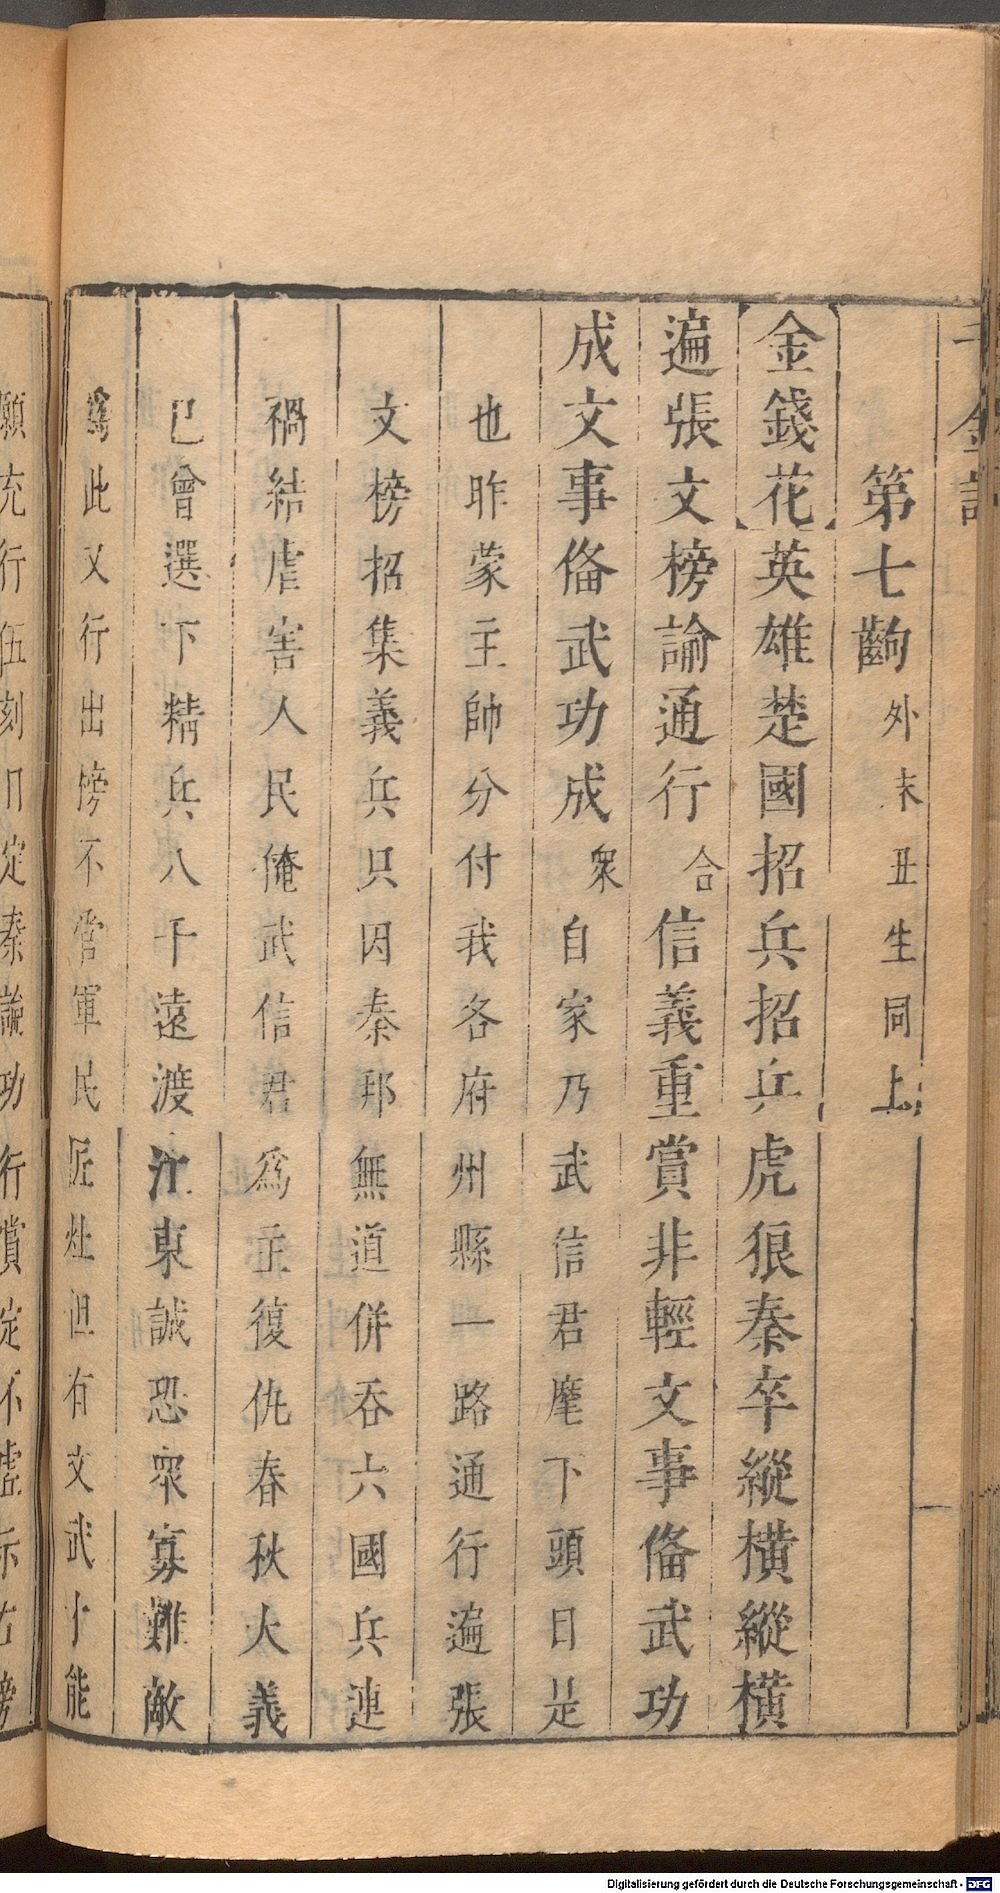 千金記
第七齣 外末丑生同上
金錢花 英雄楚國招兵招兵虎狼秦卒縱橫縱橫
遍張文榜論通行 合 信義重賞非輕文事俻武功
成文事俻武功成 衆 自家乃武信君麾下頭目是
也昨蒙主帥分付我各府州縣一路通行遍張
文榜招集義兵只因秦邦無道併吞六國兵連
禍結虐害人民俺武信君爲主復仇春秋大義
已曾選下精兵八千遠渡江東誠恐衆寡難敵
爲此又行出榜不管軍民匠灶但有文武才能
願充行伍刻日定秦論功行賞定不虛示右榜
Digitalisierung gefördert durch die Deutsche Forschungsgemeinschaft - DFG